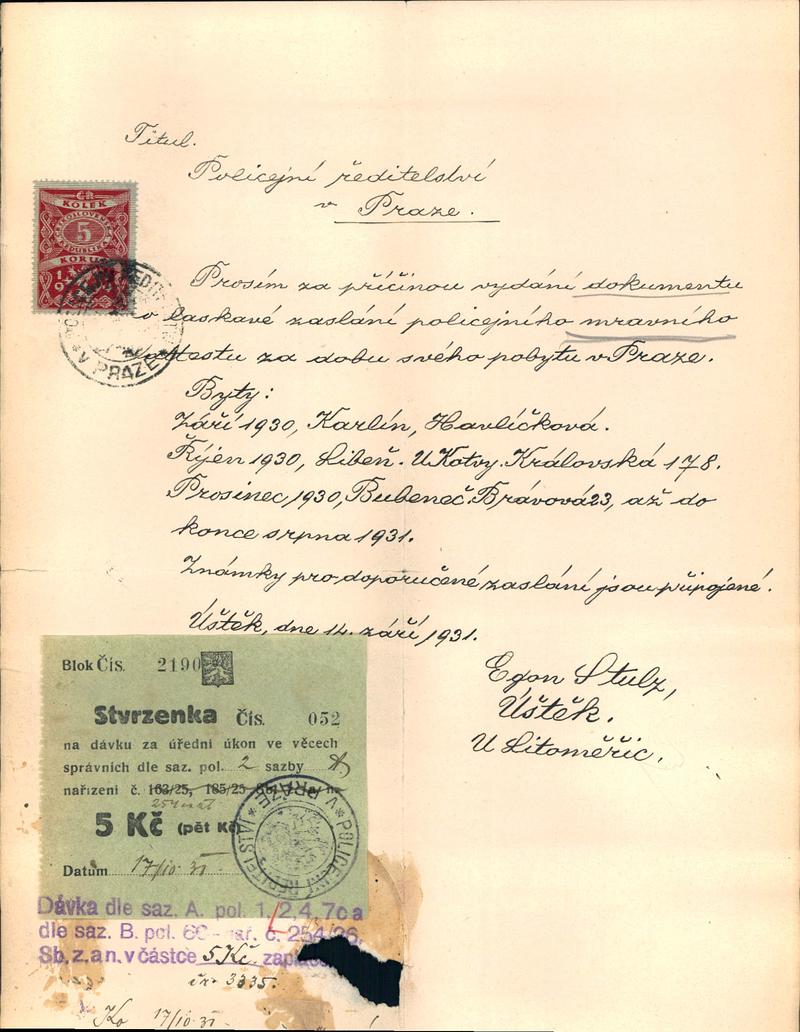 Titul.
Policejní ředitelství
v Praze.
ČR
KOLEK
5
KORUN
V PRAZE
Prosím za příčinou vydání dokumentu
o laskavé zaslání policejního mravního
attestu za dobu svého pobytu v Praze.
Byty:
Září 1930, Karlín, Havlíčková.
Říjen 1930, Libeň. U Kotvy. Královská 178.
Prosinec 1930, Bubeneč. Brávová 23, až do
konce srpna 1931.
Známky pro doporučené zaslání jsou připojené.
Úštěk, dne 14. září 1931.
Egon Stulz,
Úštěk.
U Litoměřic.
Blok Čís. 2190
Stvrzenka Čís. 052
na dávku za úřední úkon ve věcech
správních dle saz. pol. 2 sazby
nařízení č. 163/25, 185/25
5 Kč (pět Kč)
POLICEJNÍ ŘEDITELSTVÍ V PRAZE
Datum 17/10 31
Dávka dle saz. A. pol. 1, 2, 4, 7c a
dle saz. B. pol. 66 nař. č. 254/26.
Sb. z. a n. v částce 5 Kč.
čn. 3335.
17/10 31